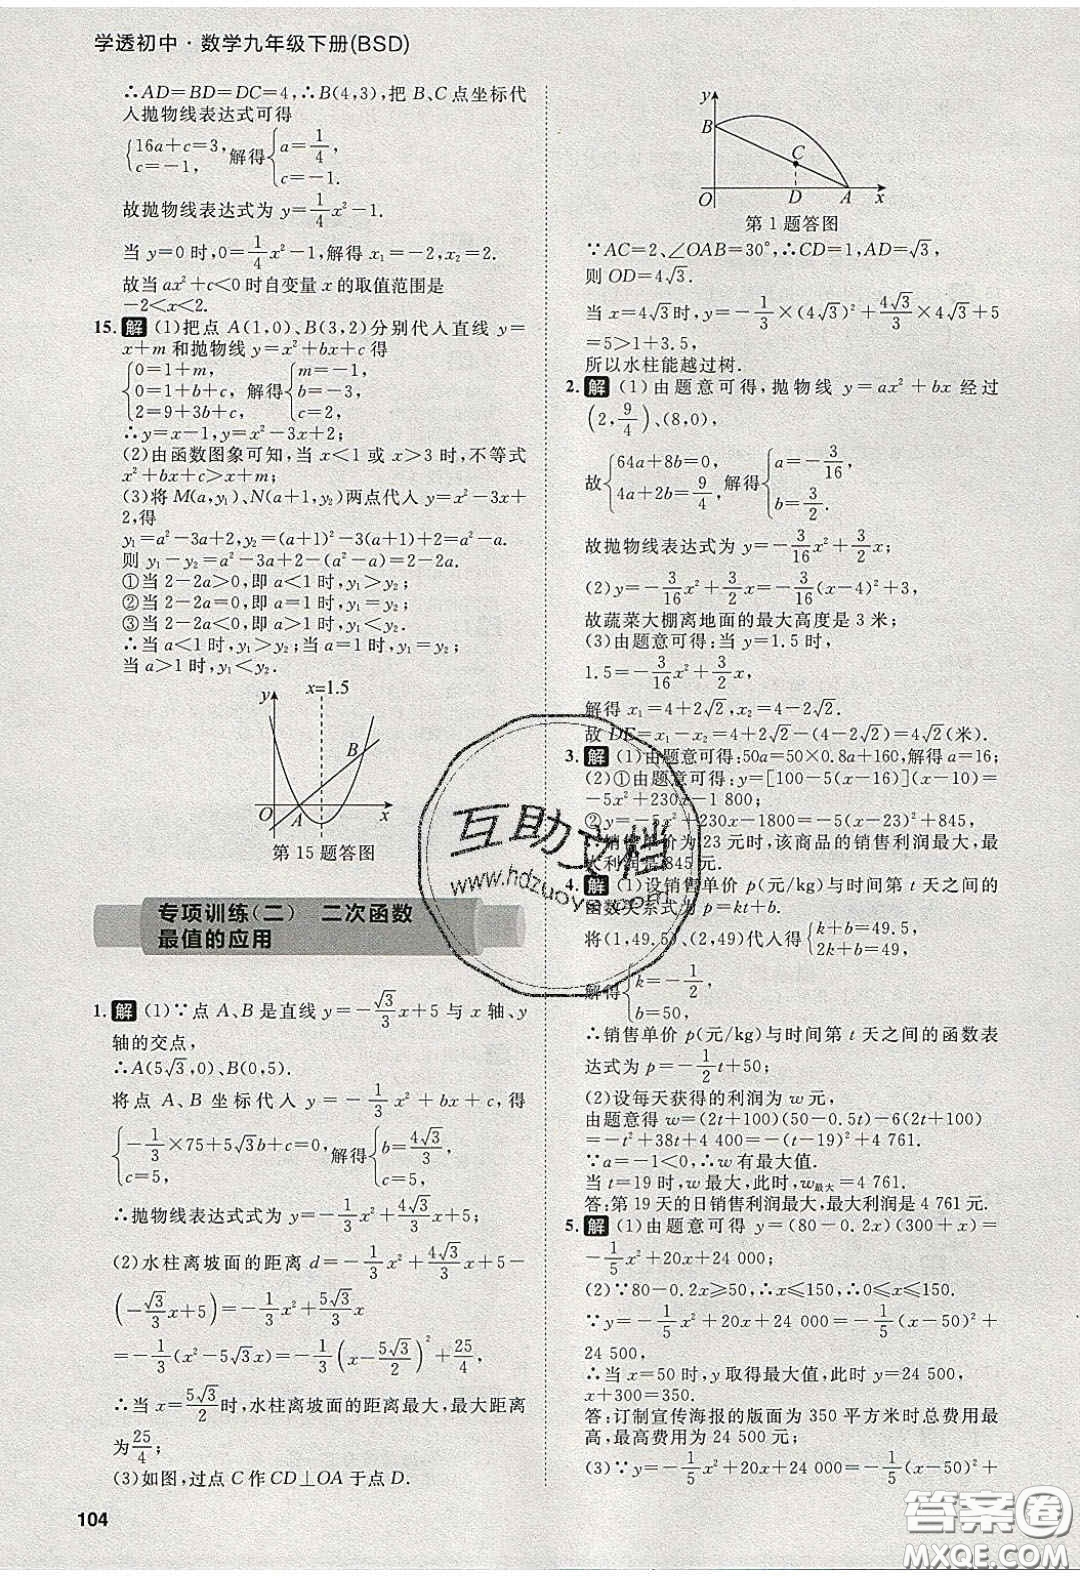 学透初中·数学九年级下册(BSD)
∴AD=BD=DC=4,∴B(4,3),把 B、C 点坐标代
入抛物线表达式可得
{16a+c=3, c=-1, 解得{a=1/4, c=-1.
故抛物线表达式为 y=1/4x²-1.
当 y=0 时,0=1/4x²-1,解得 x₁=-2,x₂=2.
故当 ax²+c<0 时自变量 x 的取值范围是
-2<x<2.
15. 解 (1)把点 A(1,0)、B(3,2)分别代入直线 y=
x+m 和抛物线 y=x²+bx+c 得
{0=1+m, 0=1+b+c, 2=9+3b+c, 解得{m=-1, b=-3, c=2,
∴y=x-1,y=x²-3x+2;
(2)由函数图象可知,当 x<1 或 x>3 时,不等式
x²+bx+c>x+m;
(3)将 M(a,y₁)、N(a+1,y₂)两点代入 y=x²-3x+
2,得
y₁=a²-3a+2,y₂=(a+1)²-3(a+1)+2=a²-a.
则 y₁-y₂=a²-3a+2-(a²-a)=2-2a.
①当 2-2a>0,即 a<1 时,y₁>y₂;
②当 2-2a=0,即 a=1 时,y₁=y₂;
③当 2-2a<0,即 a>1 时,y₁<y₂.
∴当 a<1 时,y₁>y₂;当 a=1 时,y₁=y₂;
当 a>1 时,y₁<y₂.
y x=1.5
B
O A x
第 15 题答图
专项训练(二) 二次函数
最值的应用
1. 解 (1)∵点 A、B 是直线 y=-√3/3x+5 与 x 轴、y
轴的交点,
∴A(5√3,0)、B(0,5).
将点 A、B 坐标代入 y=-1/3x²+bx+c,得
{-1/3×75+5√3b+c=0, c=5, 解得{b=4√3/3, c=5,
∴抛物线表达式式为 y=-1/3x²+4√3/3x+5;
(2)水柱离坡面的距离 d=-1/3x²+4√3/3x+5-
(-√3/3x+5)=-1/3x²+5√3/3x
=-1/3(x²-5√3x)=-1/3(x-5√3/2)²+25/4,
∴当 x=5√3/2时,水柱离坡面的距离最大,最大距离
为25/4;
(3)如图,过点 C 作 CD⊥OA 于点 D.
104
y
B
C
O D A x
第 1 题答图
∵AC=2、∠OAB=30°,∴CD=1,AD=√3,
则 OD=4√3.
当 x=4√3时,y=-1/3×(4√3)²+4√3/3×4√3+5
=5>1+3.5,
所以水柱能越过树.
2. 解 (1)由题意可得,抛物线 y=ax²+bx 经过
(2,9/4)、(8,0),
故{64a+8b=0, 4a+2b=9/4, 解得{a=-3/16, b=3/2.
故抛物线表达式为 y=-3/16x²+3/2x;
(2)y=-3/16x²+3/2x=-3/16(x-4)²+3,
故蔬菜大棚离地面的最大高度是 3 米;
(3)由题意可得:当 y=1.5 时,
1.5=-3/16x²+3/2x,
解得 x₁=4+2√2,x₂=4-2√2.
故 DE=x₁-x₂=4+2√2-(4-2√2)=4√2(米).
3. 解 (1)由题意可得:50a=50×0.8a+160,解得 a=16;
(2)①由题意可得:y=[100-5(x-16)](x-10)=
-5x²+230x-1 800;
②y=-5x²+230x-1800=-5(x-23)²+845,
∴销售单价为 23 元时,该商品的销售利润最大,最
大利润是845 元.
4. 解 (1)设销售单价 p 与时间第 t 天之间的
函数关系式为 p=kt+b.
将(1,49.5)、(2,49)代入得{k+b=49.5, 2k+b=49,
解得{k=-1/2, b=50,
∴销售单价 p(元/kg)与时间第 t 天之间的函数表
达式为 p=-1/2t+50;
(2)设每天获得的利润为 w 元,
由题意得 w=(2t+100)(50-0.5t)-6(2t+100)
=-t²+38t+4 400=-(t-19)²+4 761.
∵a=-1<0,∴w 有最大值.
当 t=19 时,w 最大,此时,w最大=4 761.
答:第 19 天的日销售利润最大,最大利润是 4 761 元.
5. 解 (1)由题意可得 y=(80-0.2x)(300+x)=
-1/5x²+20x+24 000;
(2)∵80-0.2x≥50,∴x≤150,∴0≤x≤150.
∵y=-1/5x²+20x+24 000=-1/5(x-50)²+
24 500,
∴当 x=50 时,y 取得最大值,y=24 500,
x+300=350.
答:订制宣传海报的版面为 350 平方米时总费用最
高,最高费用为 24 500 元;
(3)∵y=-1/5x²+20x+24 000=-1/5(x-50)²+
互助文档
www.hdzuoye.com
答案圈
MXQE.COM